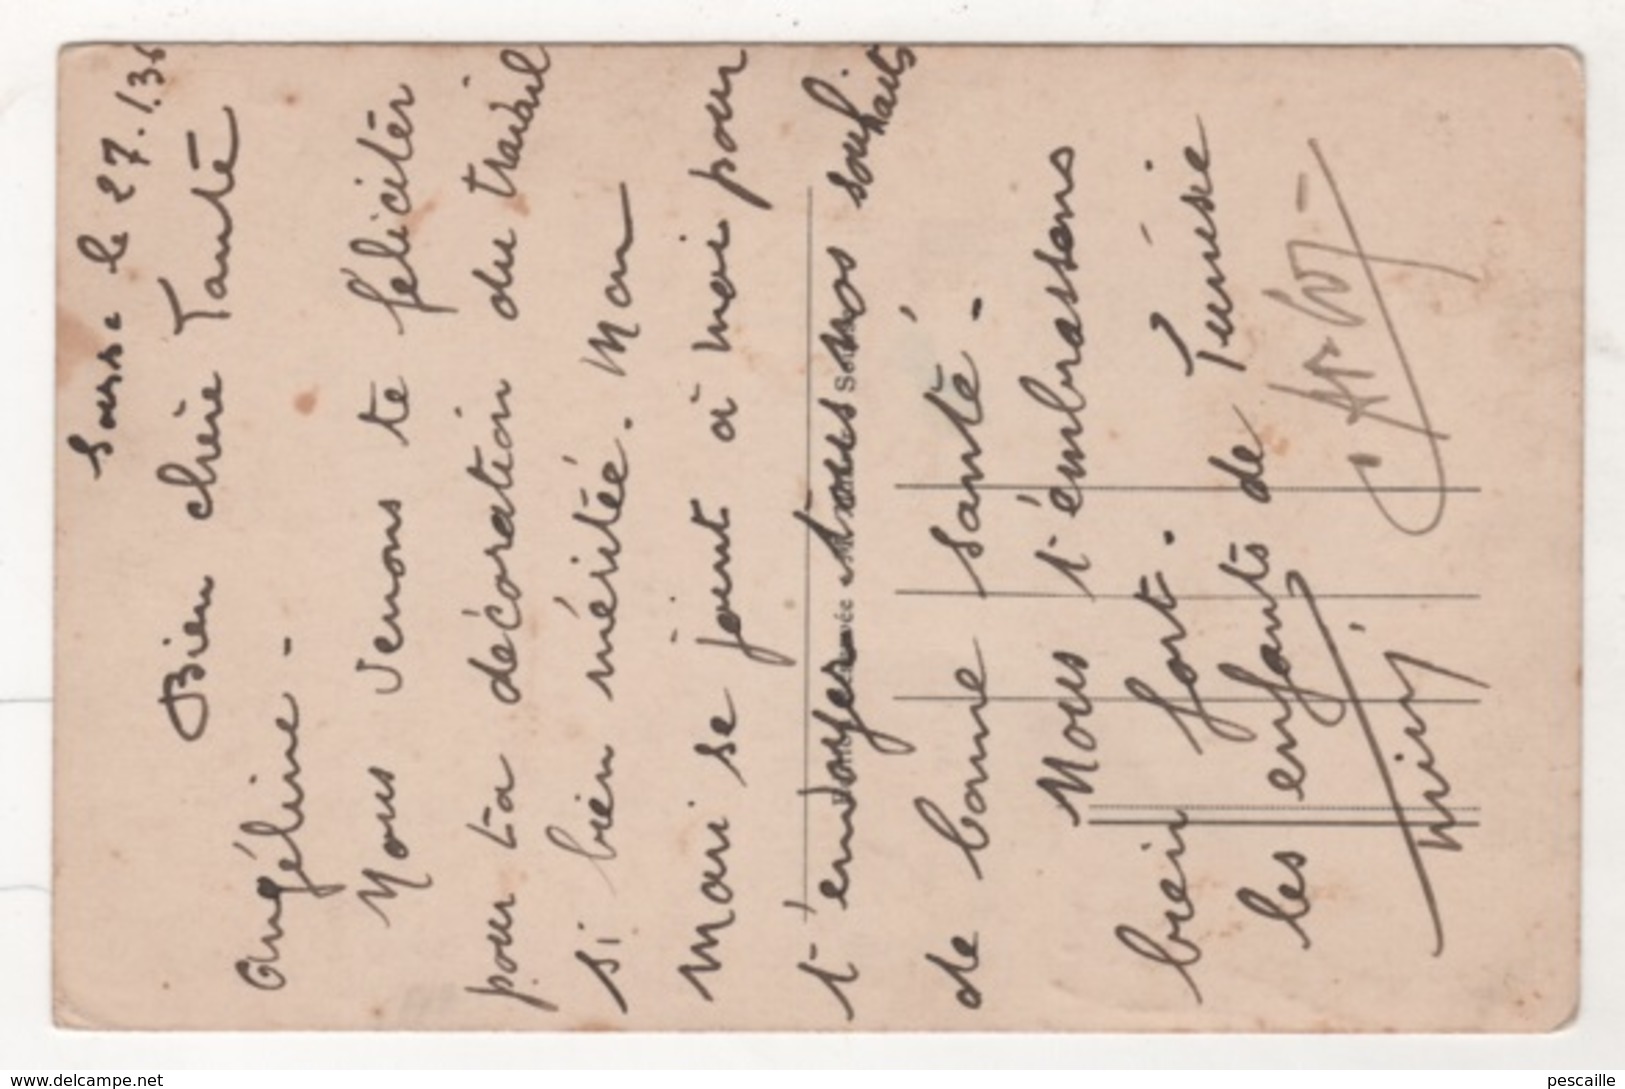 Sousse le 27.1.36
Bien chère Tante
Angéline -
Nous venons te féliciter
pour ta décoration du travail
si bien méritée. Mon
mari se joint à moi pour
t'envoyer tous nos souhaits
de bonne santé. -
Nous t'embrassons
bien fort.
les enfants de Tunisie
www.delcampe.net
pescaille